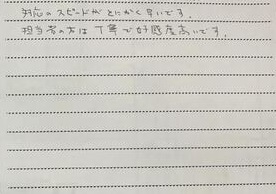 対応のスピードがとにかく早いです。
担当者の方は丁寧で好感度高いです。